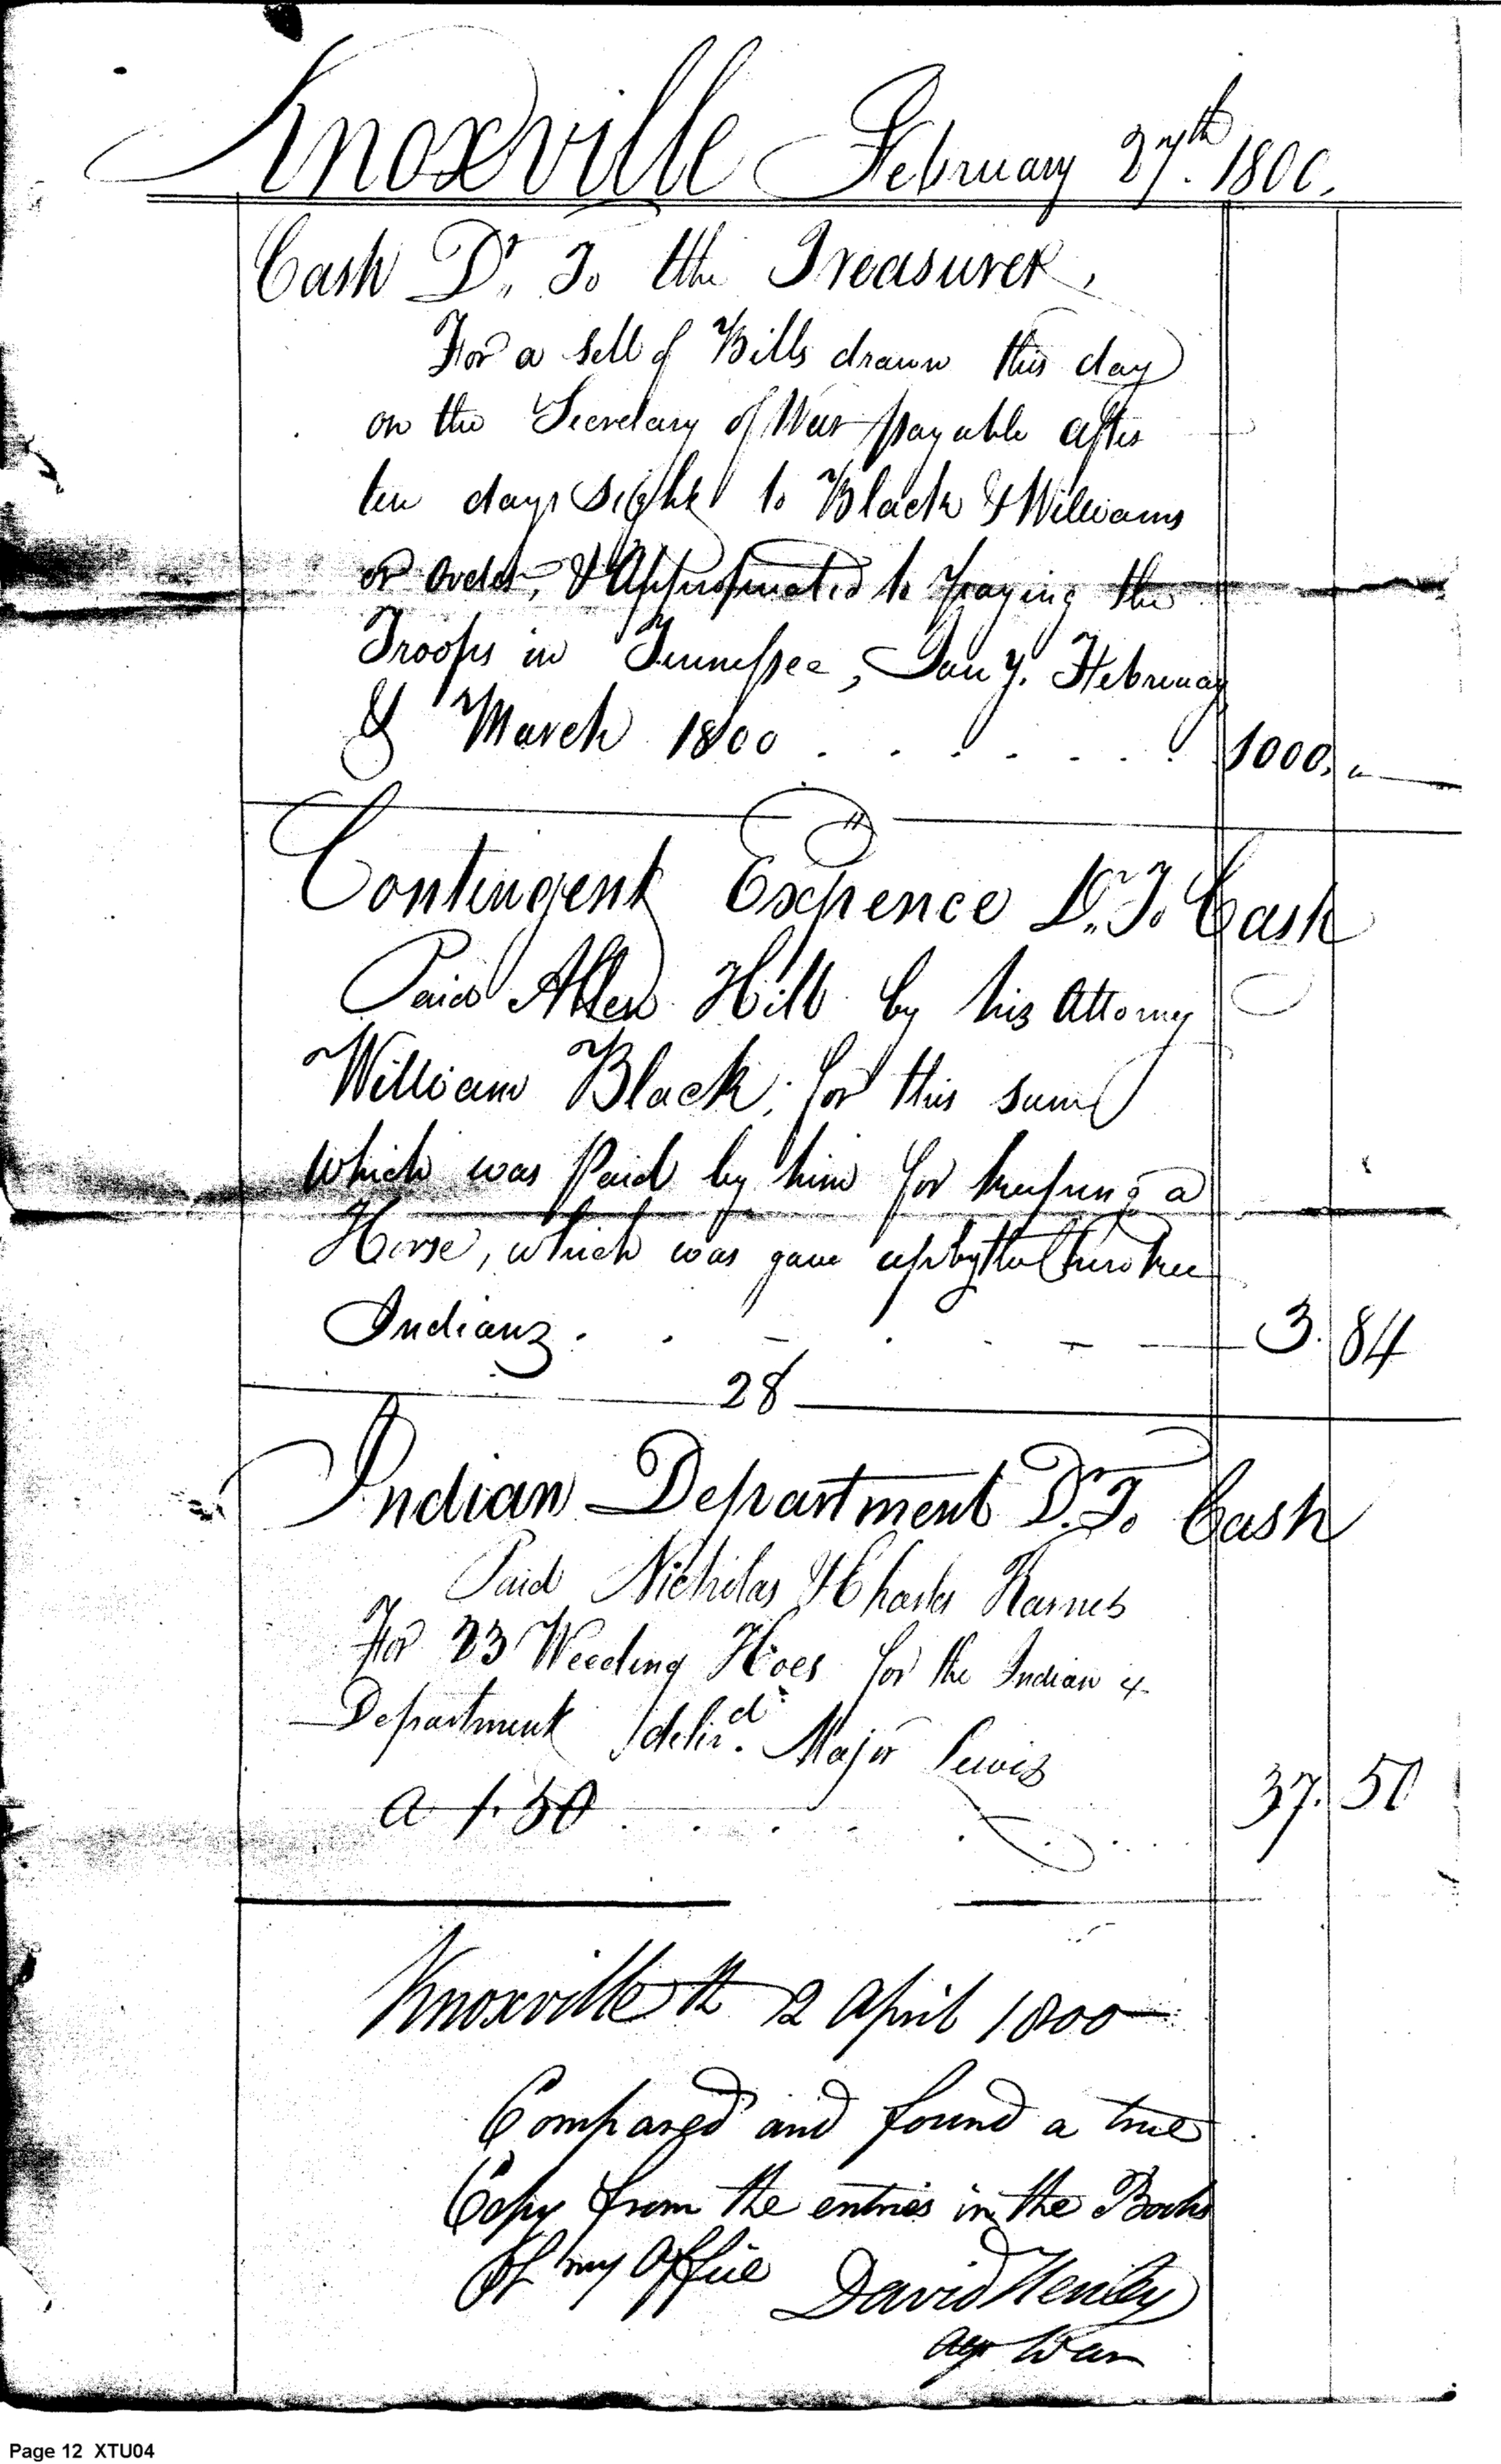 Knoxville February 27th. 1800.
Cash Dr. To the Treasurer,
For a sett of Bills drawn this day
on the Secretary of War payable after
ten days sight to Black & Williams
or order, & Appropriated to paying the
Troops in Tennessee, Jany. February
& March 1800 . . . . . . 1000. "
"
Contingent Expence Dr. To Cash
Paid Allen Hill by his Attorney
William Black, for this sum
which was Paid by him for keeping a
Horse, which was gave up by the Cherokee
Indians. . - . - - 3. 84
28
Indian Department Dr. To Cash
Paid Nicholas & Charles
For 23 Weeding Hoes for the Indian
Department delivd. Major Lewis
a 1.50 . . . . . . . 37. 50
Knoxville 2 April 1800
Compared and found a true
Copy from the entries in the Books
of my Office David Henley
agt War
Page 12 XTU04